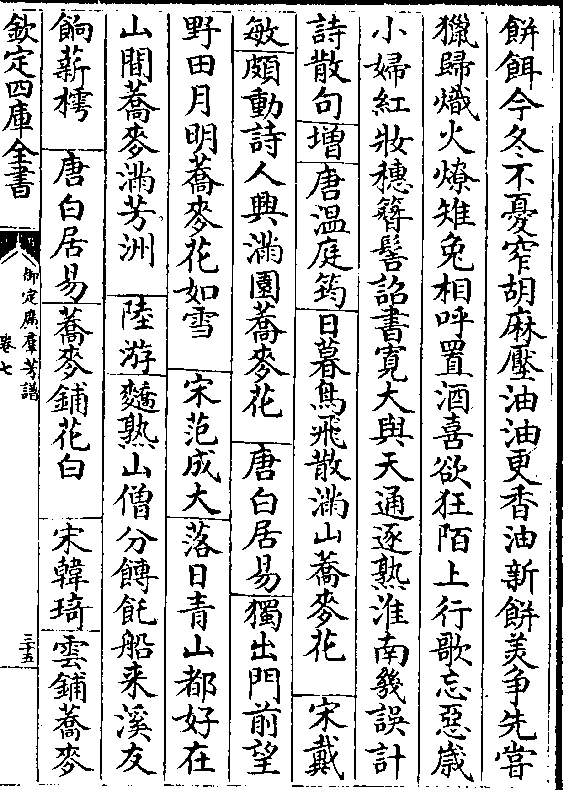 餅餌今冬不憂窄胡麻壓油油更香油新餅美争先嘗
獵歸熾火燎雉兔相呼置酒喜欲狂陌上行歌忘惡歲
小婦紅妝穗簪髻詔書寛大與天通逐熟淮南幾誤計
詩散句增唐温庭筠日暮鳥飛散滿山蕎麥花 宋戴
敏頗動詩人興滿園蕎麥花 唐白居易獨出門前望
野田月明蕎麥花如雪 宋范成大落日青山都好在
山間蕎麥滿芳洲 陸游熟山僧分餺飥船来溪友
餉薪樗 唐白居易蕎麥鋪花白 宋韓琦雲鋪蕎麥
欽定四庫全書
御定廣羣芳譜
卷七
三十五